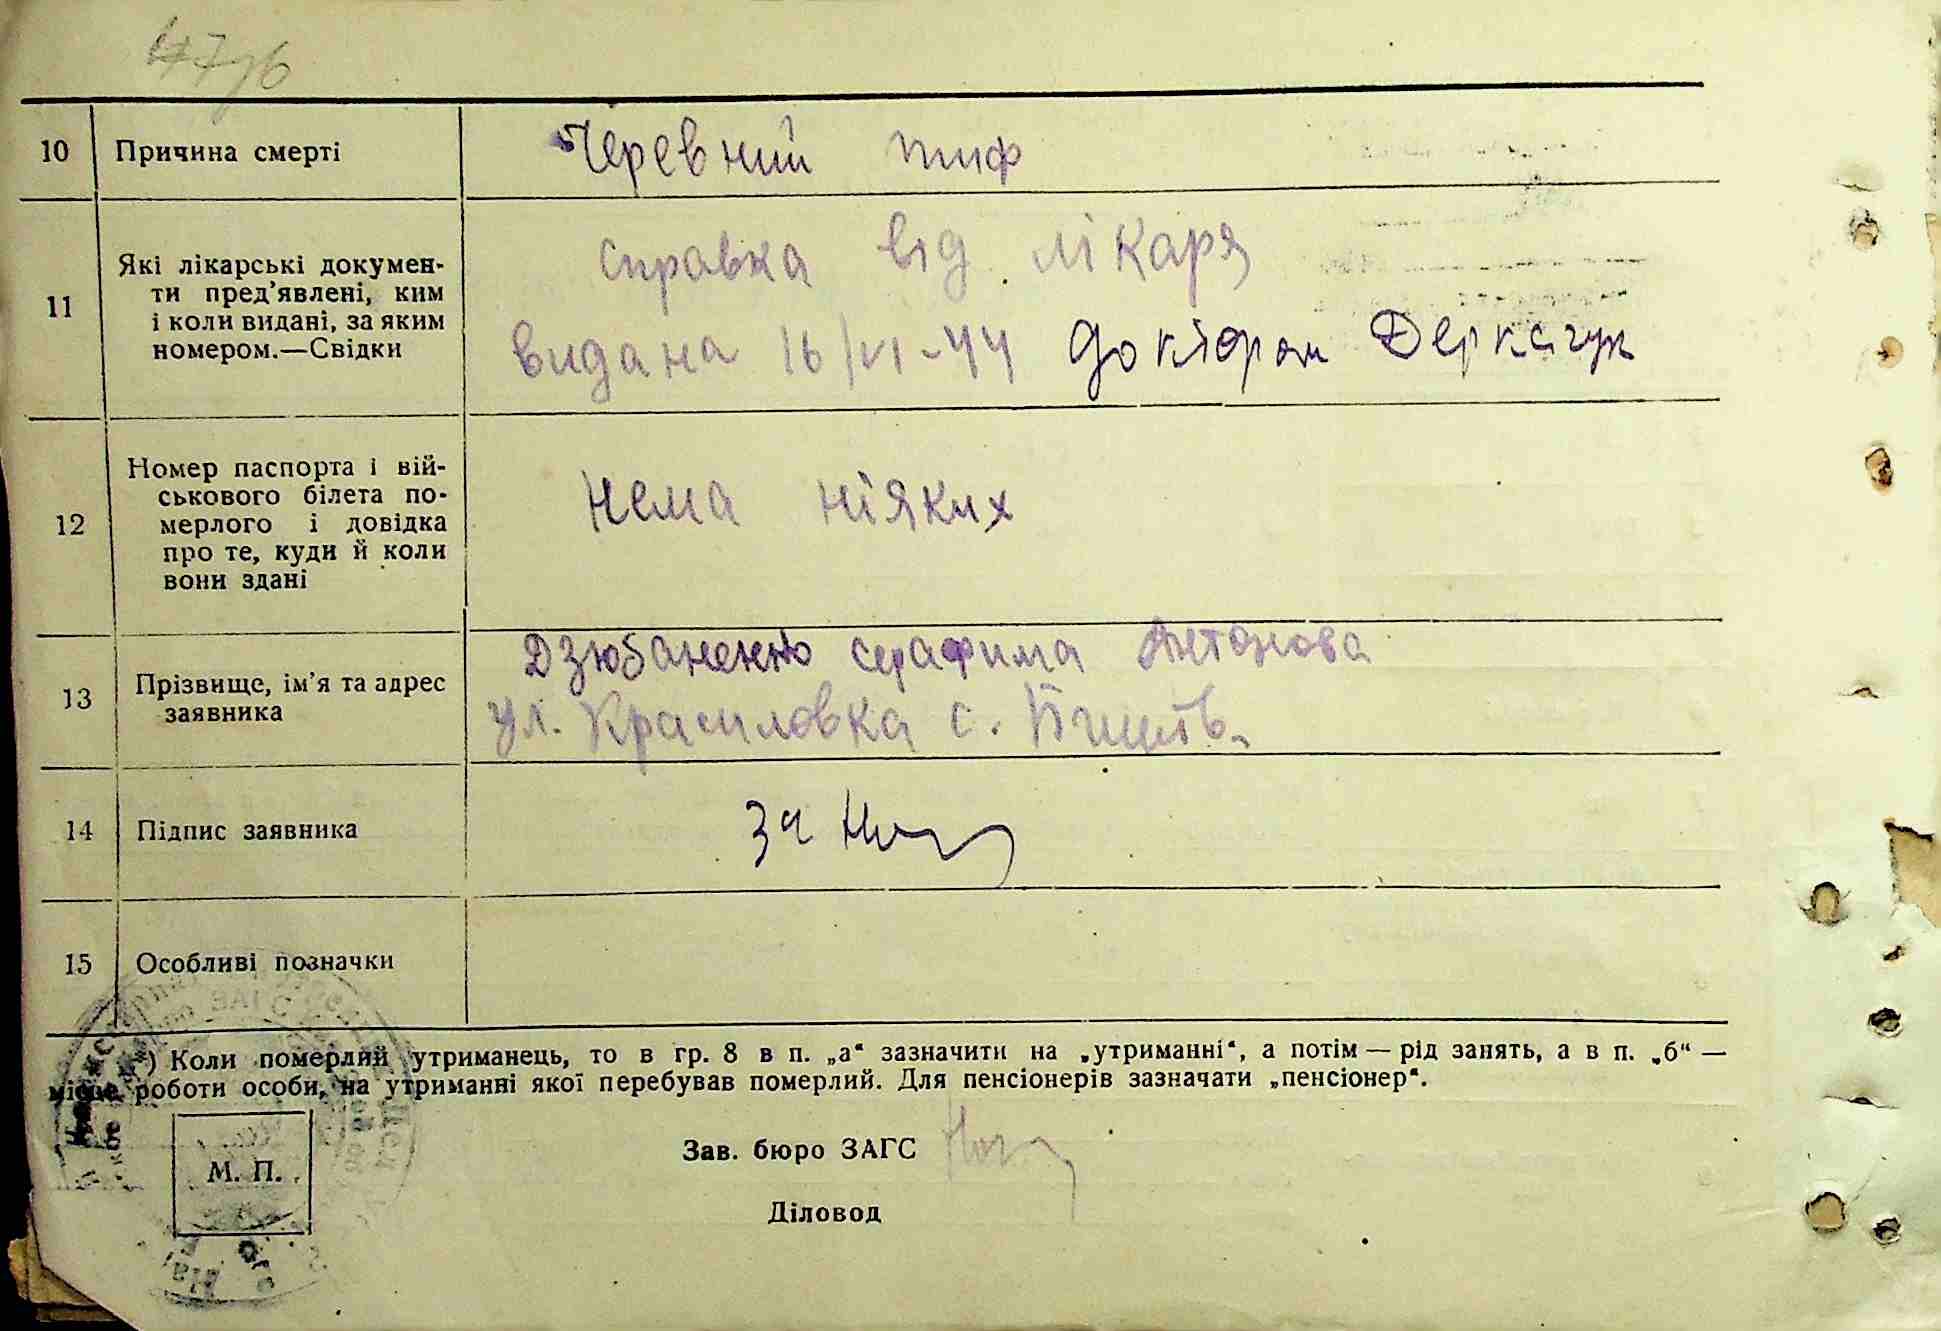 10 Причина смерті Черевний тиф
справка від лікаря
11 Які лікарські докумен-
ти пред’явлені, ким
і коли видані, за яким
номером.—Свідки
видана 16/VI-44 доктором Деркачук
12 Номер паспорта і вій-
ськового білета по-
мерлого і довідка
про те, куди й коли
вони здані
нема ніяких
13 Прізвище, ім’я та адрес
заявника
Дзюбаненко серафима Антонова
ул. Красиловка с.
14 Підпис заявника за
15 Особливі позначки
ЗАГС
*) Коли померлий утриманець, то в гр. 8 в п. „а“ зазначити на „утриманні“, а потім — рід занять, а в п. „б“ —
місце роботи особи, на утриманні якої перебував померлий. Для пенсіонерів зазначати „пенсіонер“.
М. П.
Зав. бюро ЗАГС
Діловод